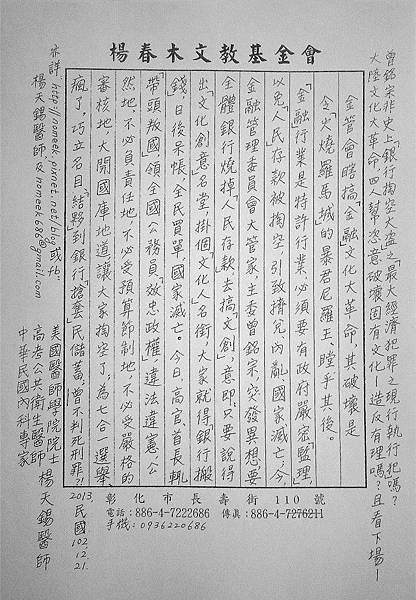 曾銘宗非史上「銀行掏空大盜」之「最大經濟犯罪之現行執行犯嗎?
大陸文化大革命,四人幫恣意破壞固有文化—造反有理嗎?且看下場—
楊春木文教基金會
金管會瞎搞金融文化大革命,其破壞是
令火燒羅馬城的暴君尼羅王,瞠乎其後。
「金融」行業是特許行業,必須要有政府嚴密「監理」,
以免「人民存款被掏空,引致擠兌、內亂國家滅亡」;今
金融管理委員會大管家,主委曾銘宗,突發異想,要
全體銀行燒掉人民存款去搞文創」,意即,只要說得
出「文化創意」名堂,掛個「文化人」名銜,大家就得「銀行搬
錢」,日後呆帳,全民買單,國家滅亡。今日,高官、首長,軋
帶頭叛國」,領全國公務員,「放忠政權」違法違憲,公
然地、不必負責任地、不必受預算節制地、不必受嚴格的
審核地,大開國庫地道,讓大家掏空了,為七合一選舉
瘋了,巧立名目「結夥」到銀行「搶奪」民儲蓄,曾不判死刑罪?!
彰化市長壽街110號
電話:886-4-7222686 傳真:886-4-7276211
手機:0936220686
2013.民國102.12.21.
美國醫師學院院士
高考公共衛生醫師 楊天錫醫師
中華民國內科專家
末詳,http://nomeek.pixnet.net/blog 或"fb"
楊天錫醫師,及nomeek686@gmail.com